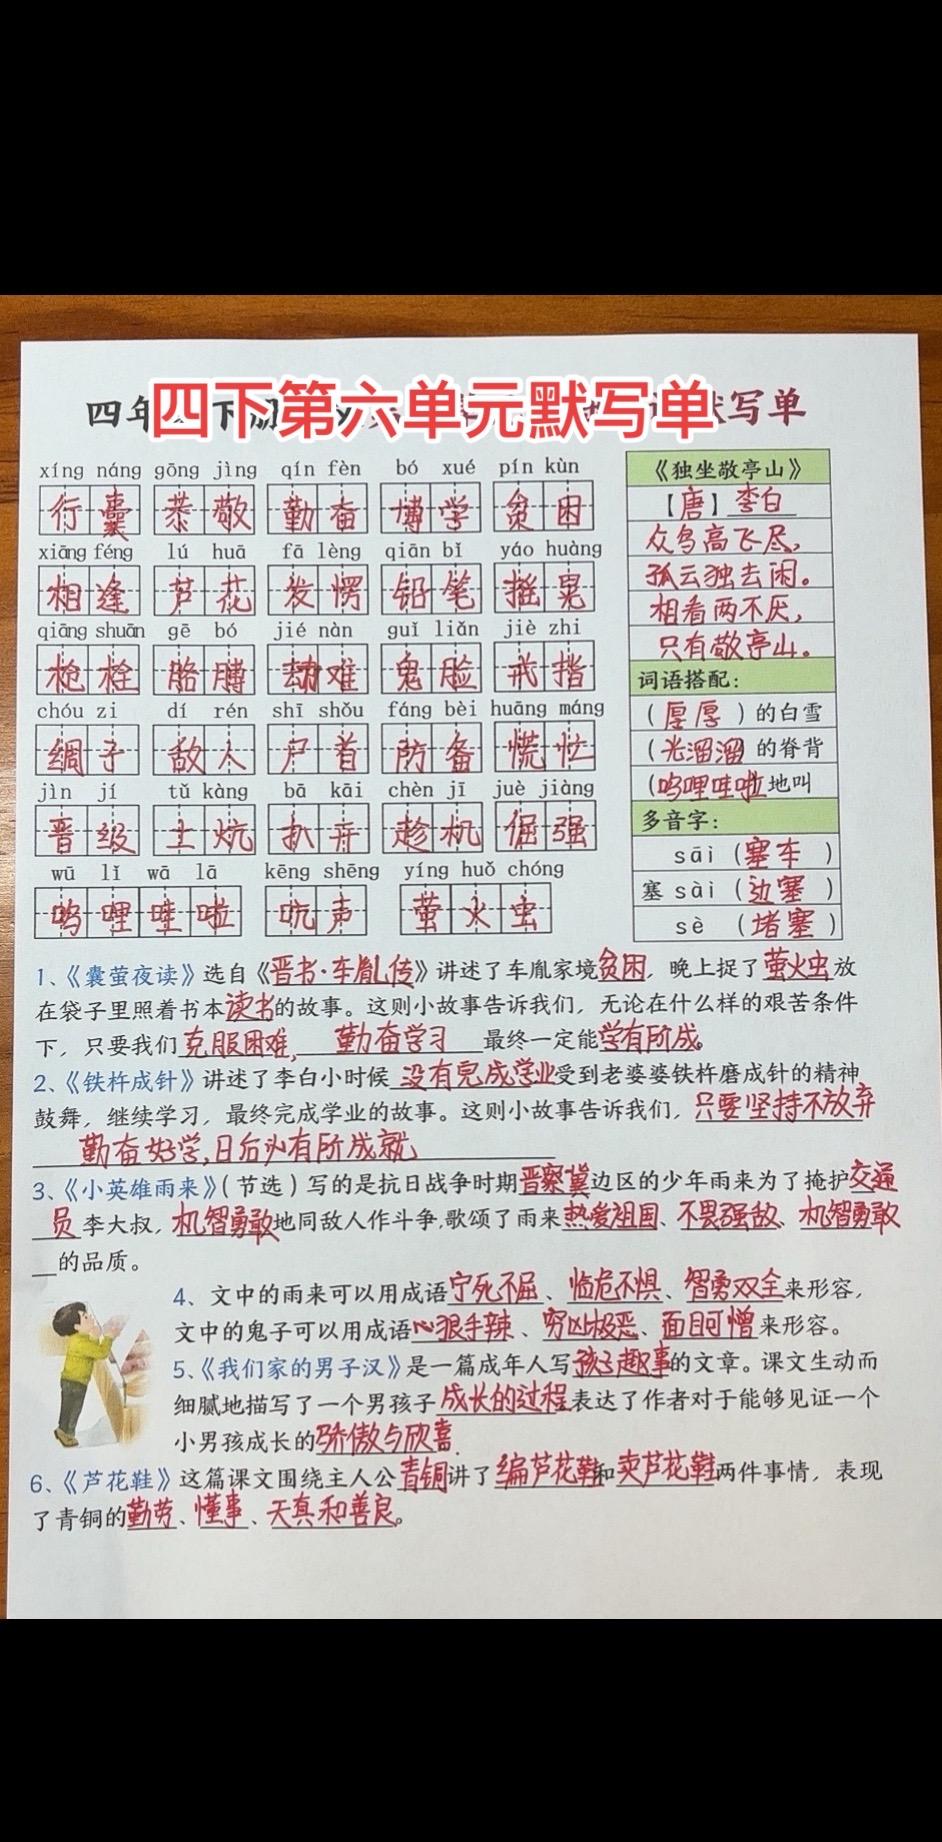 四下第六单元默写单
四年 下册 默写单
xíng náng gōng jìng qín fèn bó xué pín kùn
行囊 恭敬 勤奋 博学 贫困
xiāng féng lú huā fā lèng qiān bǐ yáo huàng
相逢 芦花 发愣 铅笔 摇晃
qiāng shuān gē bó jié nàn guǐ liǎn jiè zhi
枪栓 胳膊 劫难 鬼脸 戒指
chóu zi dí rén shī shǒu fáng bèi huāng máng
绸子 敌人 尸首 防备 慌忙
jìn jí tǔ kàng bā kāi chèn jī juè jiàng
晋级 土炕 扒开 趁机 倔强
wū lǐ wā lā kēng shēng yíng huǒ chóng
呜哩哇啦 吭声 萤火虫
《独坐敬亭山》
【唐】李白
众鸟高飞尽，
孤云独去闲。
相看两不厌，
只有敬亭山。
词语搭配：
（厚厚）的白雪
（光溜溜）的脊背
（呜哩哇啦地叫
多音字：
sāi（塞车）
塞 sài（边塞）
sè（堵塞）
1、《囊萤夜读》选自《晋书·车胤传》讲述了车胤家境贫困，晚上捉了萤火虫放
在袋子里照着书本读书的故事。这则小故事告诉我们，无论在什么样的艰苦条件
下，只要我们克服困难，勤奋学习 最终一定能学有所成。
2、《铁杵成针》讲述了李白小时候没有完成学业受到老婆婆铁杵磨成针的精神
鼓舞，继续学习，最终完成学业的故事。这则小故事告诉我们，只要坚持不放弃
勤奋好学，日后必有所成就
3、《小英雄雨来》（节选）写的是抗日战争时期晋察冀边区的少年雨来为了掩护交通
员李大叔，机智勇敢地同敌人作斗争，歌颂了雨来热爱祖国、不畏强敌、机智勇敢
的品质。
4、文中的雨来可以用成语宁死不屈、临危不惧、智勇双全来形容，
文中的鬼子可以用成语心狠手辣、穷凶极恶、面目可憎来形容。
5、《我们家的男子汉》是一篇成年人写孩子趣事的文章。课文生动而
细腻地描写了一个男孩子成长的过程表达了作者对于能够见证一个
小男孩成长的骄傲与欣喜.
6、《芦花鞋》这篇课文围绕主人公青铜讲了编芦花鞋和卖芦花鞋两件事情，表现
了青铜的勤劳、懂事、天真和善良。